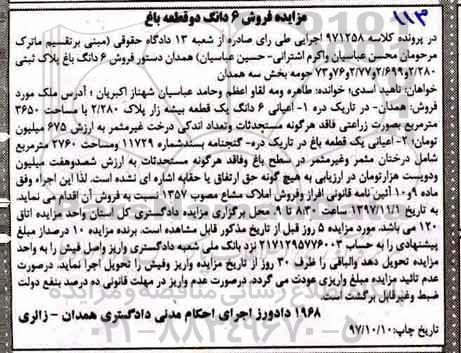 ۱۱۳
مزایده فروش ۶ دانگ دوقطعه باغ
در پرونده کلاسه ۹۷۱۲۵۸ اجرایی طی رای صادره از شعبه ۱۳ دادگاه حقوقی (مبنی برتقسیم ماترک
مرحومان محسن عباسیان واکرم اشترانی- حسین عباسیان) همدان دستور فروش ۶ دانگ باغ پلاک ثبتی
۲/۲۸۰و۲/۶۹۹و۲/۷۷و۷۶و۷۳ حومه بخش سه همدان
خواهان: ناهید اسدی؛ خوانده: طاهره ومه لقاو اعظم وحامد عباسیان شهناز اکبریان ؛ آدرس ملک مورد
فروش: همدان- در تاریک دره ۱- اعیانی ۶ دانگ یک قطعه بیشه زار پلاک ۲/۲۸۰ با مساحت ۳۶۵۰
مترمربع بصورت زراعتی فاقد هرگونه مستحدثات وتعداد اندکی درخت غیرمثمر به ارزش ۶۷۵ میلیون
تومان؛ ۲- اعیانی یک قطعه باغ در تاریک دره- گنجنامه بسندشماره ۱۱۷۲۹ ومساحت ۲۷۶۰ مترمربع
شامل درختان مثمر وغیرمثمر در سطح باغ وفاقد هرگونه مستحدثات به ارزش شصدوهفت میلیون
ودویست هزارتومان در ارزیابی به هیچ گونه حق ارتفاق یا حقابه اشاره ای نشده است. لذا این اجراء وفق
ماده ۹و۱۰ آئین نامه قانونی افراز وفروش املاک مشاع مصوب ۱۳۵۷ نسبت به فروش آن اقدام می نماید.
به تاریخ ۱۳۹۷/۱۱/۱ ساعت ۸:۳۰ تا ۹ محل برگزاری مزایده دادگستری کل استان واحد مزایده اتاق
۱۲۰ می باشد. مورد مزایده ۵ روز قبل از تاریخ مذکور قابل مشاهده است. برنده مزایده ۱۰ درصداز مبلغ
پیشنهادی را به حساب ۲۱۷۱۲۹۵۷۷۶۰۰۳ نزد بانک ملی شعبه دادگستری واریز واصل فیش را به واحد
مزایده تحویل دهد والباقی را ظرف ۳۰ روز از تاریخ مزایده واریز وفیش را تحویل اجرا نماید. درصورت
عدم تائید مزایده مبلغ واریزی عودت می گردد. درصورت عدم واریز در مهلت قانونی ده درصد بنفع دولت
ضبط وغیرقابل برگشت است.
۱۹۶۸ دادورز اجرای احکام مدنی دادگستری همدان - زالری
تاریخ چاپ: ۹۷/۱۰/۱۰
۰۲۱-۸۸۳۴۹۶۷۰-۵